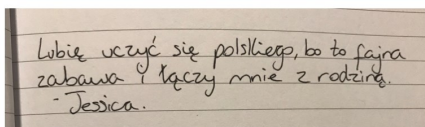 Lubię uczyć się polskiego, bo to fajna
zabawa i łączy mnie z rodziną.
- Jessica.